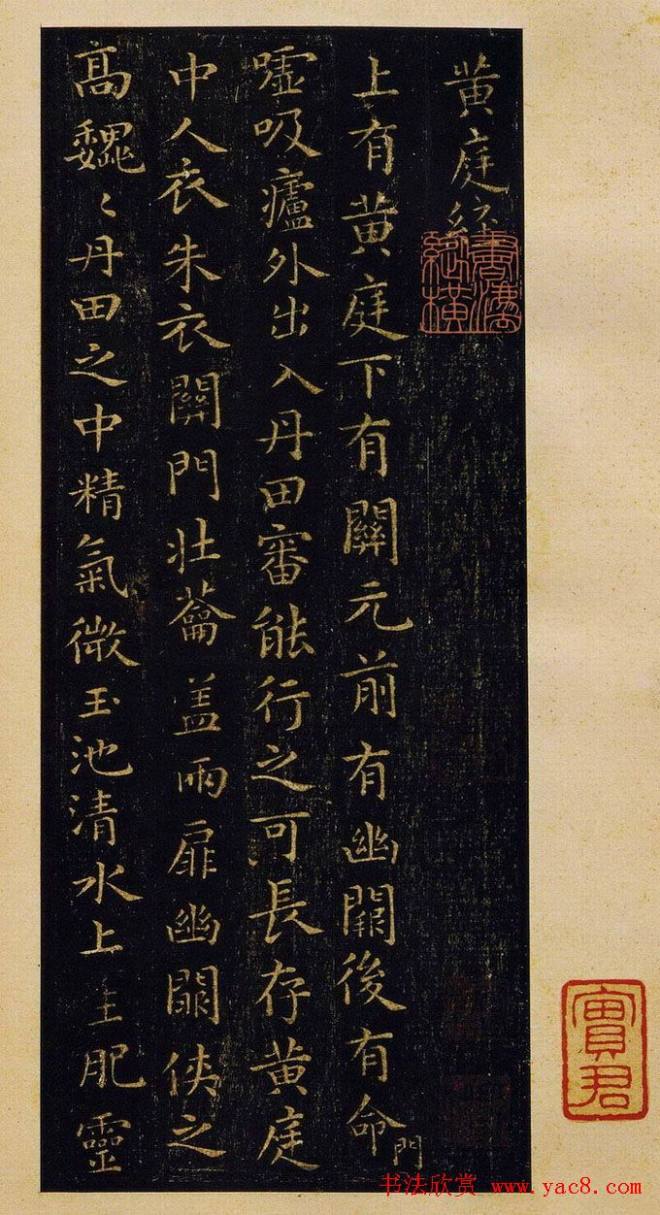 黄庭經
上有黄庭下有關元前有幽闕後有命門
噓吸廬外出入丹田審能行之可長存黄庭
中人衣朱衣關門壯蘥盖兩扉幽闕俠之
髙魏〻丹田之中精氣微玉池清水上生肥靈
寶君
书法欣赏 www.yac8.com